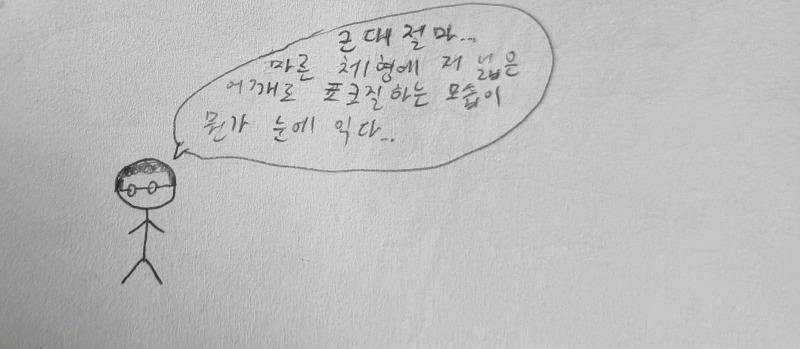 근대절마...
마른 체형에 저 넓은
어깨로 포크질하는 모습이
뭔가 눈에 익다...